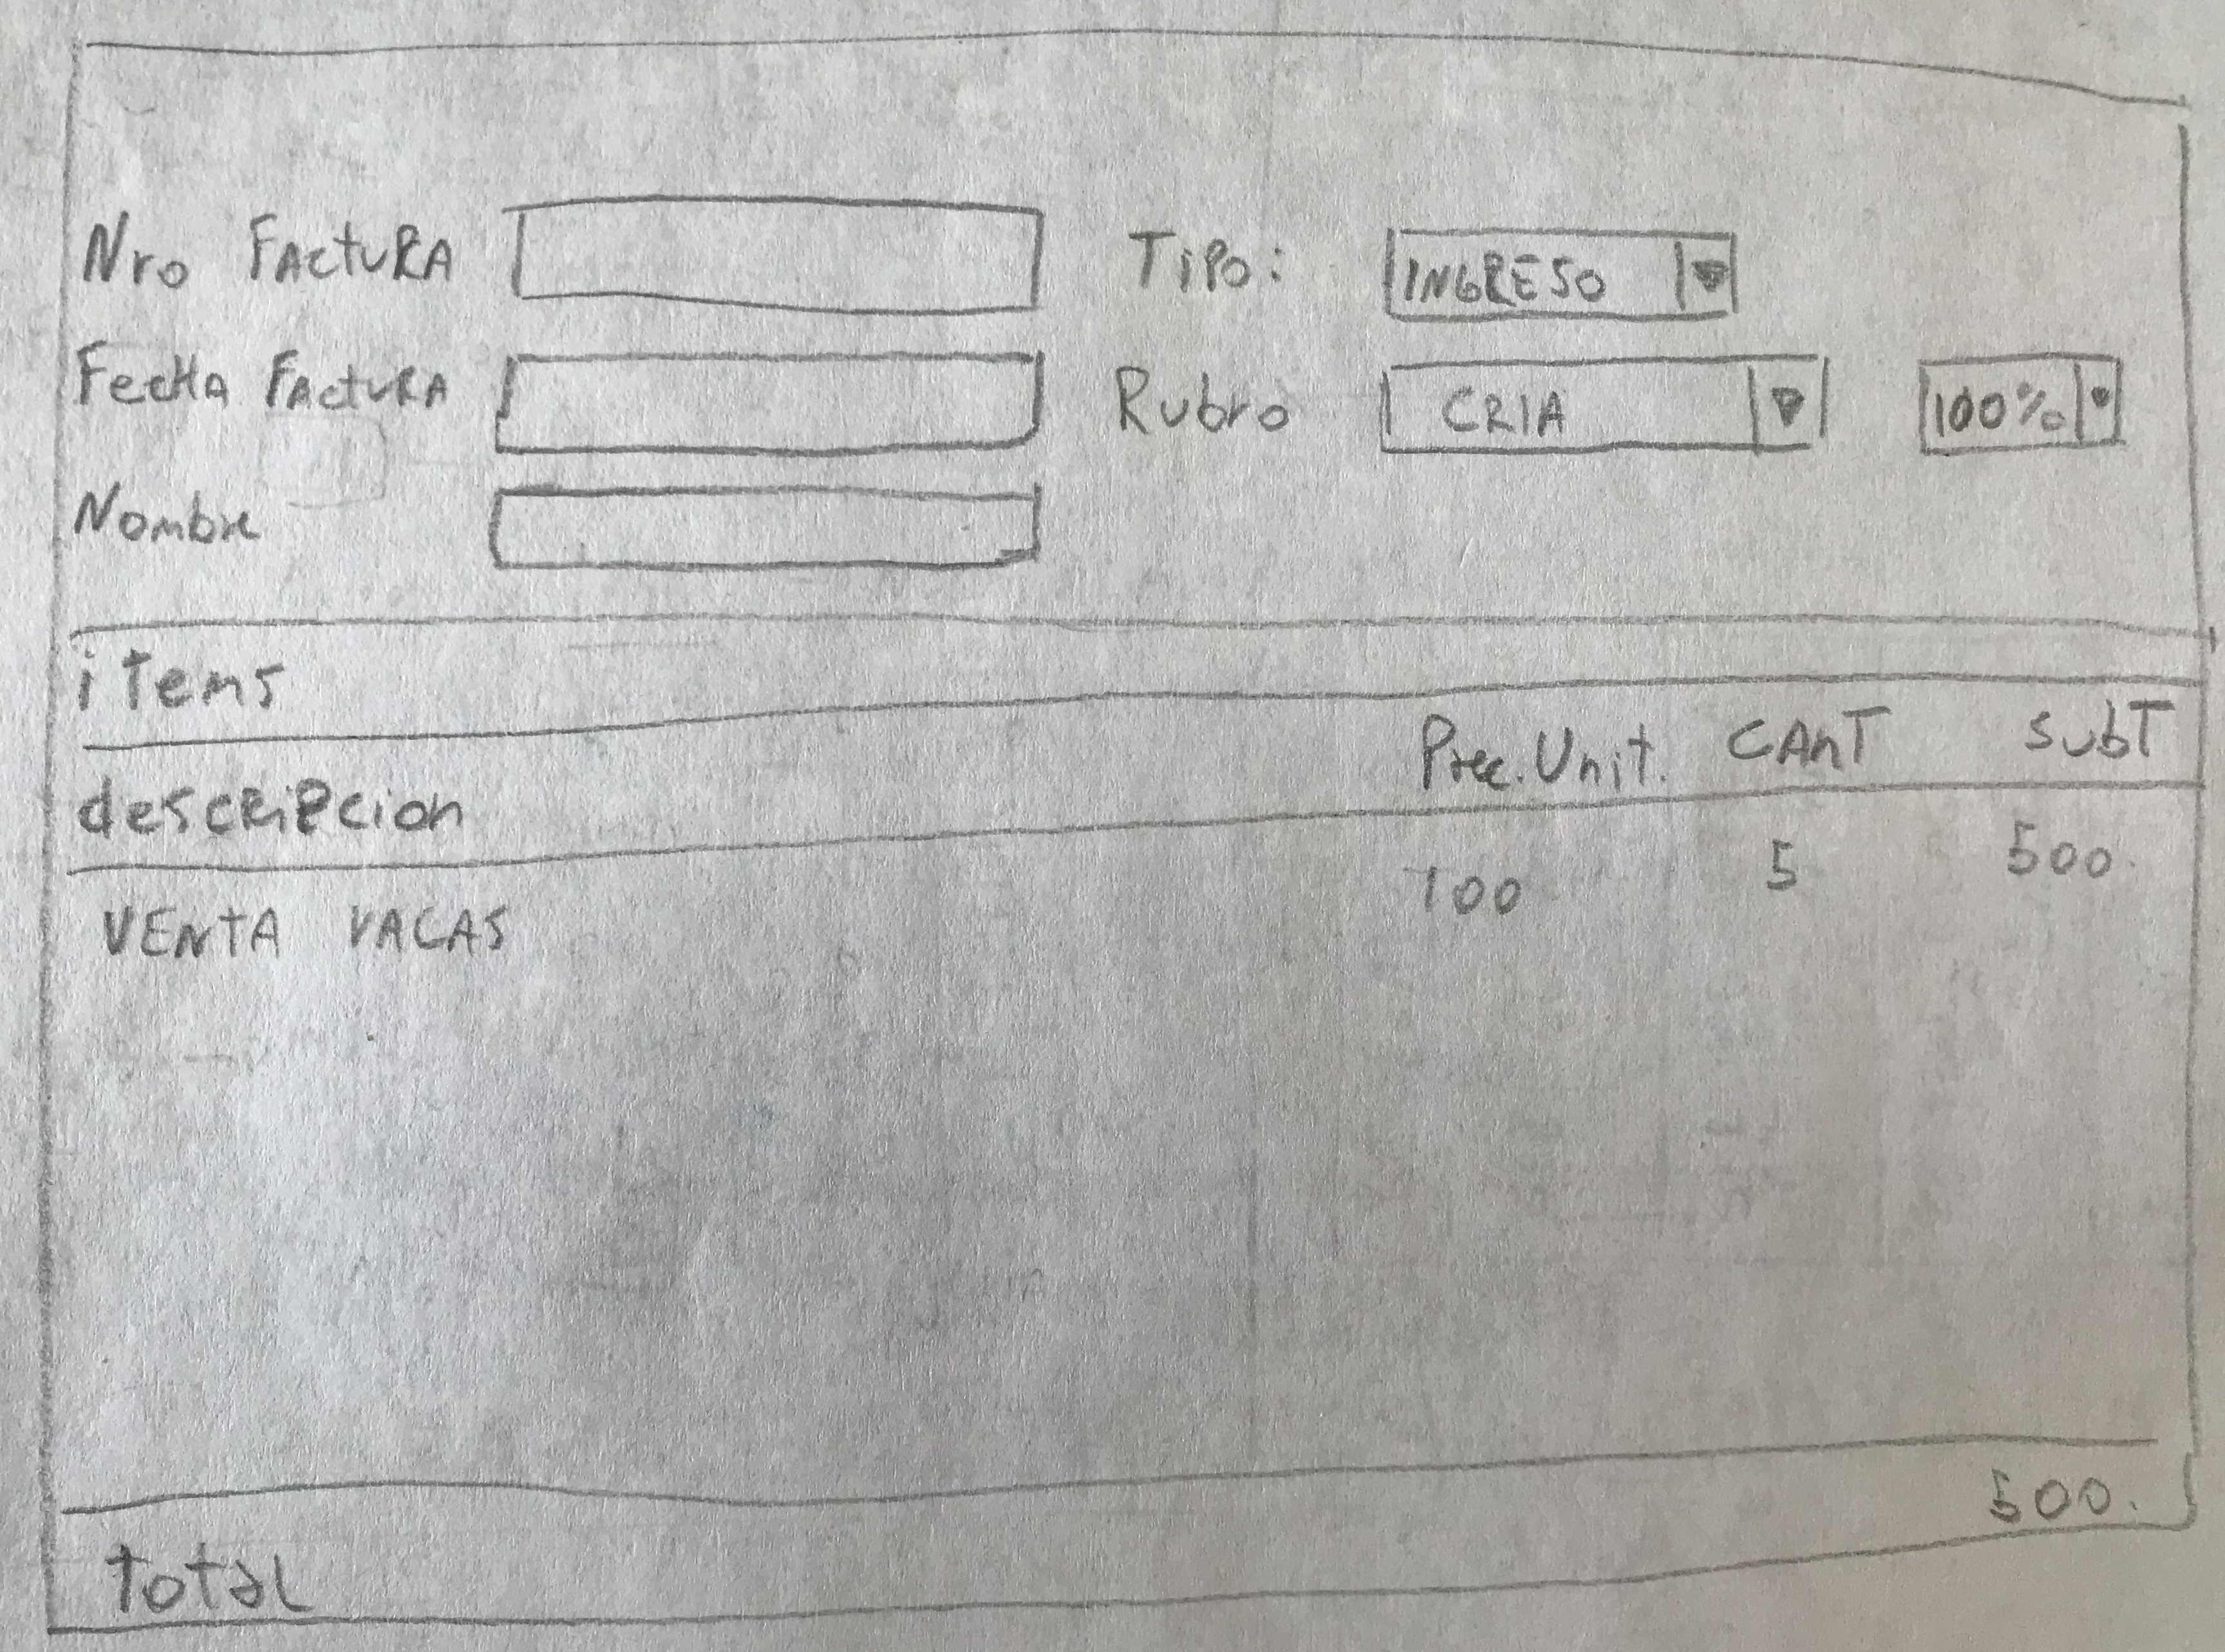 Nro FACtuRA Tipo: INGRESO
FecHA FActuRA Rubro CRIA 100%
Nombre
items
descRiPcion Prec. Unit. CAnT subT
VENTA VACAS 100 5 500.
total 500.